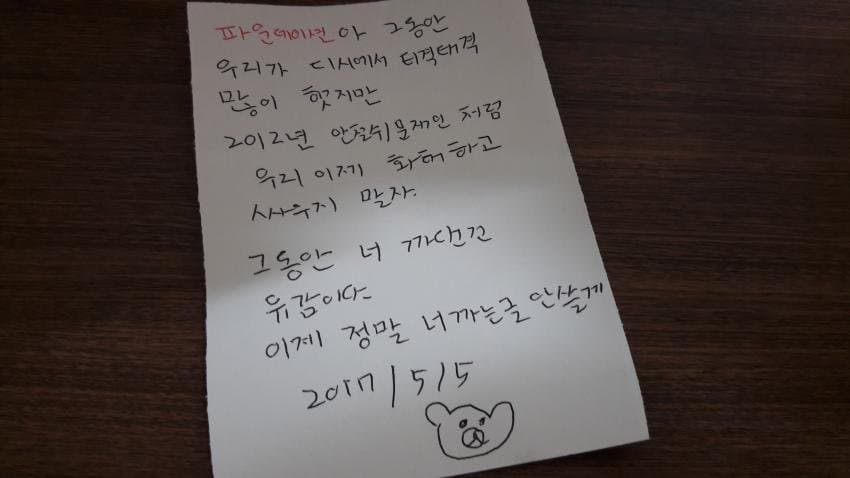 파운데이션아 그동안
우리가 디시에서 티격태격
많이 했지만
2012년 안철쉬문재인 처럼
우리 이제 화해하고
싸우지 말자.
그동안 너 까던건
유감이다
이제 정말 너까는글 안쓸게
2017/5/5